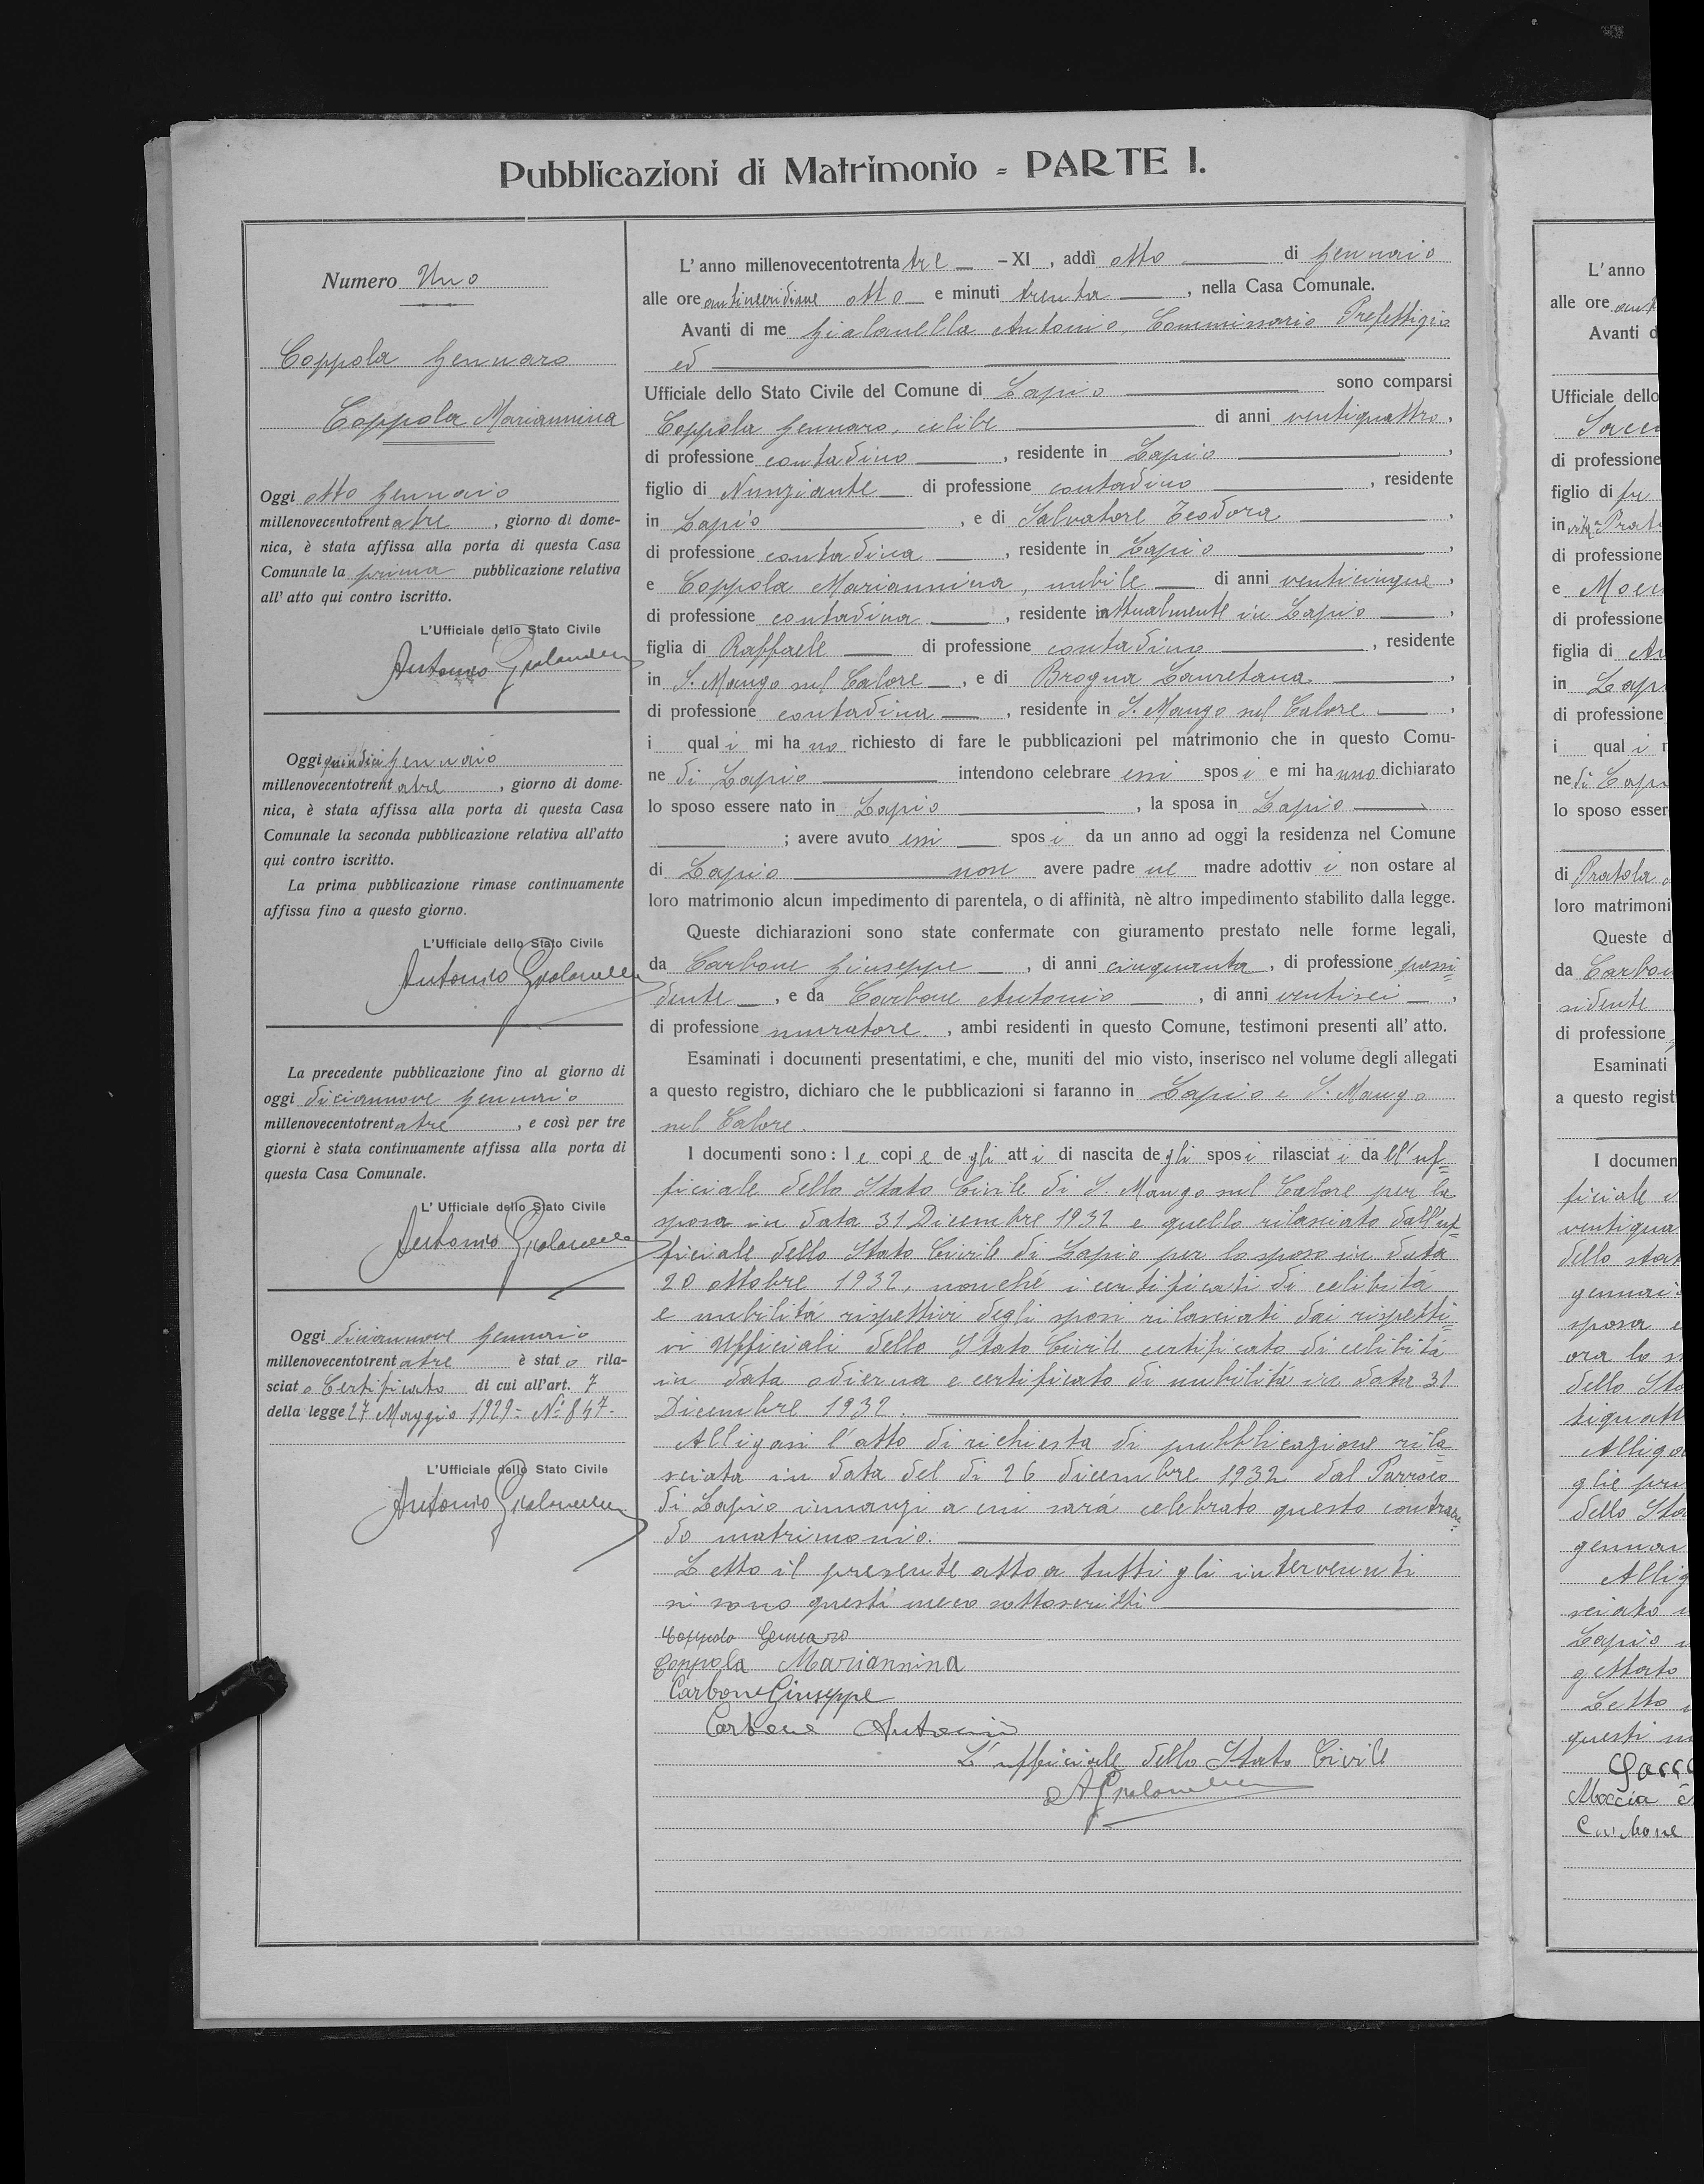 Pubblicazioni di Matrimonio = PARTE I.
Numero Uno
Coppola Gennaro
Coppola Mariannina
Oggi otto Gennaio
millenovecentotrentatre, giorno di dome-
nica, è stata affissa alla porta di questa Casa
Comunale la prima pubblicazione relativa
all' atto qui contro iscritto.
L'Ufficiale dello Stato Civile
Antonio Gialanella
Oggi quindici Gennaio
millenovecentotrentatre, giorno di dome-
nica, è stata affissa alla porta di questa Casa
Comunale la seconda pubblicazione relativa all'atto
qui contro iscritto.
La prima pubblicazione rimase continuamente
affissa fino a questo giorno.
L'Ufficiale dello Stato Civile
Antonio Gialanella
La precedente pubblicazione fino al giorno di
oggi diciannove Gennaio
millenovecentotrentatre, e così per tre
giorni è stata continuamente affissa alla porta di
questa Casa Comunale.
L' Ufficiale dello Stato Civile
Antonio Gialanella
Oggi diciannove Gennaio
millenovecentotrentatre è stato rila-
sciato Certificato di cui all'art. 7
della legge 27 Maggio 1929 = N° 847.
L'Ufficiale dello Stato Civile
Antonio Gialanella
L' anno millenovecentotrentatre - XI, addì otto di Gennaio
alle ore antimeridiane otto e minuti trenta, nella Casa Comunale.
Avanti di me Gialanella Antonio, Commissario Prefettizio
ed
Ufficiale dello Stato Civile del Comune di Lapio sono comparsi
Coppola Gennaro, celibe di anni ventiquattro,
di professione contadino, residente in Lapio,
figlio di Nunziante di professione contadino, residente
in Lapio, e di Salvatore Teodora,
di professione contadina, residente in Lapio,
e Coppola Mariannina, nubile di anni venticinque,
di professione contadina, residente in attualmente in Lapio,
figlia di Raffaele di professione contadino, residente
in S. Mango sul Calore, e di Brogna Lauretana,
di professione contadina, residente in S. Mango sul Calore,
i quali mi hanno richiesto di fare le pubblicazioni pel matrimonio che in questo Comu-
ne di Lapio intendono celebrare essi sposi e mi hanno dichiarato
lo sposo essere nato in Lapio, la sposa in Lapio
; avere avuto essi sposi da un anno ad oggi la residenza nel Comune
di Lapio non avere padre ne madre adottivi non ostare al
loro matrimonio alcun impedimento di parentela, o di affinità, nè altro impedimento stabilito dalla legge.
Queste dichiarazioni sono state confermate con giuramento prestato nelle forme legali,
da Carbone Giuseppe, di anni cinquanta, di professione possi=
dente, e da Carbone Antonio, di anni ventisei,
di professione muratore, ambi residenti in questo Comune, testimoni presenti all' atto.
Esaminati i documenti presentatimi, e che, muniti del mio visto, inserisco nel volume degli allegati
a questo registro, dichiaro che le pubblicazioni si faranno in Lapio e S. Mango
sul Calore.
I documenti sono: le copie degli atti di nascita degli sposi rilasciati dall'uf=
ficiale dello Stato Civile di S. Mango sul Calore per la
sposa in data 31 Dicembre 1932 e quello rilasciato dall'uf=
ficiale dello Stato Civile di Lapio per lo sposo in data
20 ottobre 1932, nonché i certificati di celibità
e nubilità rispettivi degli sposi rilasciati dai rispetti=
vi Ufficiali dello Stato Civile certificato di celibità
in data odierna e certificato di nubilità in data 31
Dicembre 1932.
Alligasi l'atto di richiesta di pubblicazione rila=
sciata in data del dì 26 dicembre 1932 dal Parroco
di Lapio innanzi a cui sarà celebrato questo contraen=
do matrimonio.
Letto il presente atto a tutti gli intervenuti
si sono questi meco sottoscritti
Coppola Gennaro
Coppola Mariannina
Carbone Giuseppe
Carbone Antonio
L'ufficiale dello Stato Civile
A Gialanella
L' anno
alle ore
Avanti d
Ufficiale dello
di professione
figlio di fu
in
di professione
e
di professione
figlia di
in Lapi
di professione
i quali
ne di Lapi
lo sposo esser
di Pratola
loro matrimoni
Queste d
da Carbo
sidente
di professione
Esaminati
a questo regist
I documen
ficiale
ventiqua
dello stat
gennai
sposa e
ora lo s
dello Sta
tiquatt
Alliga
glie pu
dello Sta
gennai
Allig
sciato
Lapio
gettato
Letto
questi m
Moccia
Carbone